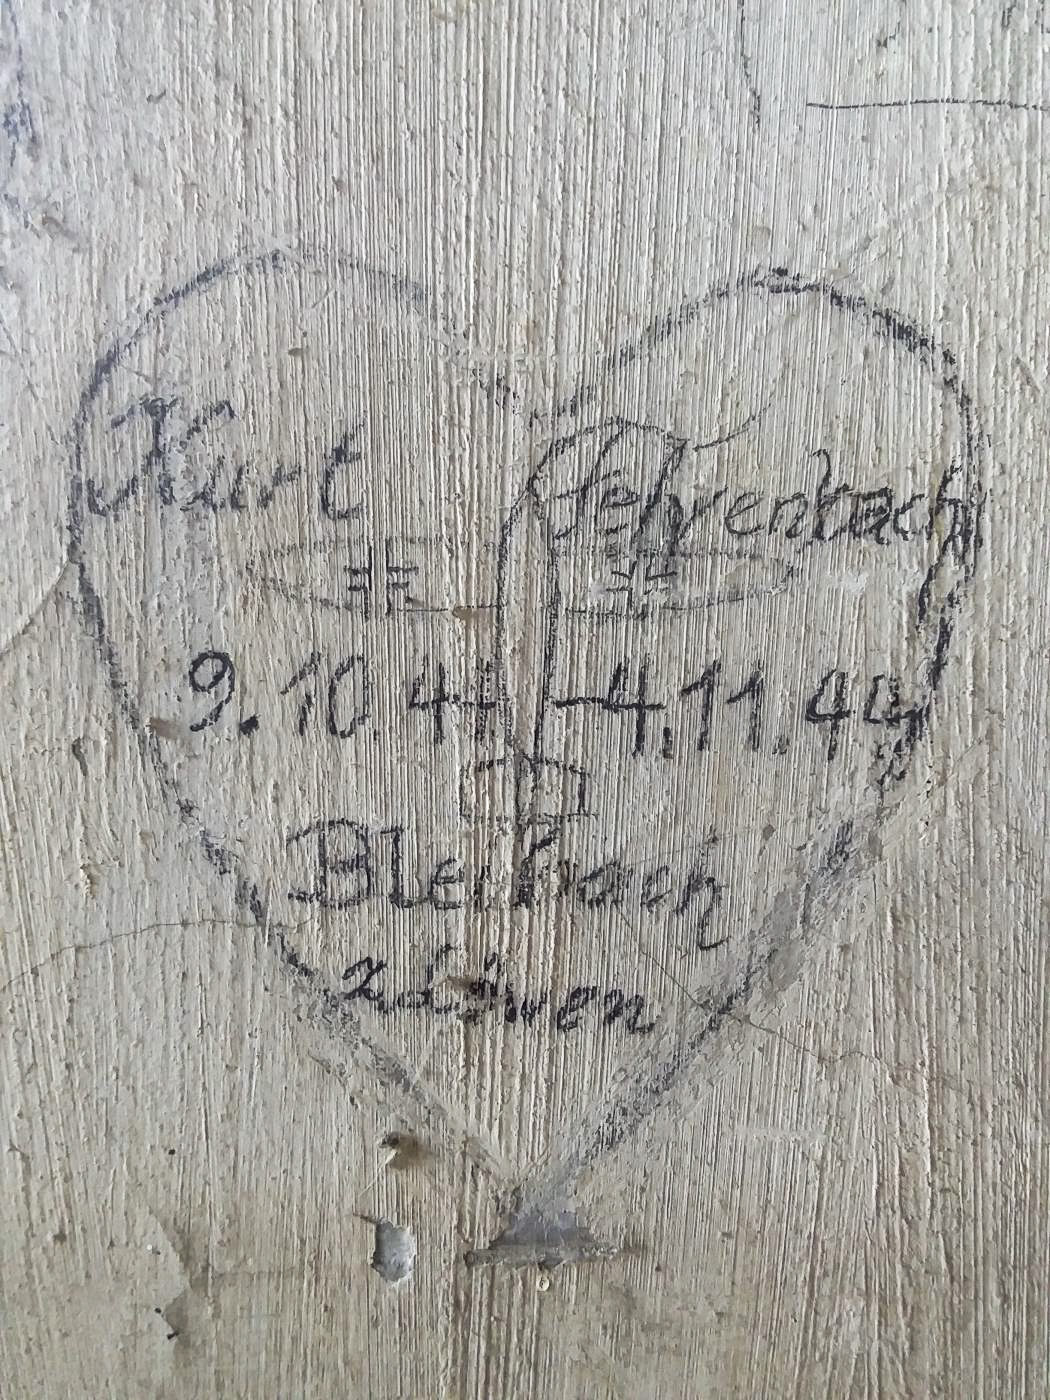 Kurt Fehrenbach
9.10.44-4.11.44
Bleibach
z. Löwen